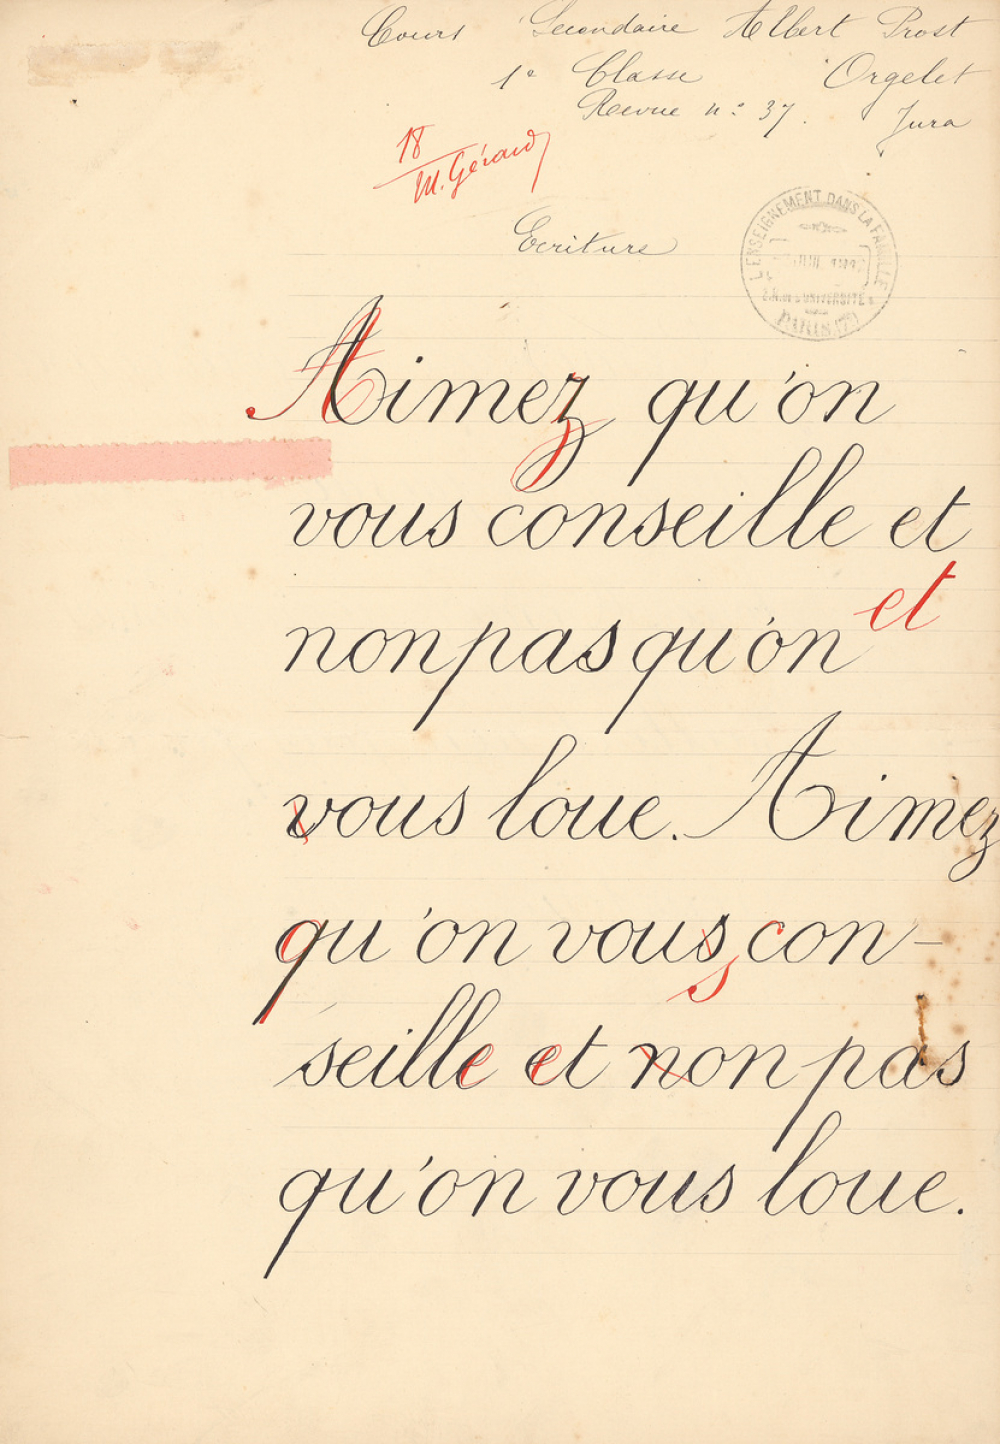 Cours Secondaire Albert Prost
1e Classe Orgelet
Revue n:o 37. Jura
18
M. Gérard
Ecriture
L'ENSEIGNEMENT DANS LA FAMILLE
UNIVERSITÉ
PARIS
Aimez qu'on
vous conseille et
et
non pas qu'on
vous loue. Aimez
qu'on vous con-
s
seille et non pas
qu'on vous loue.